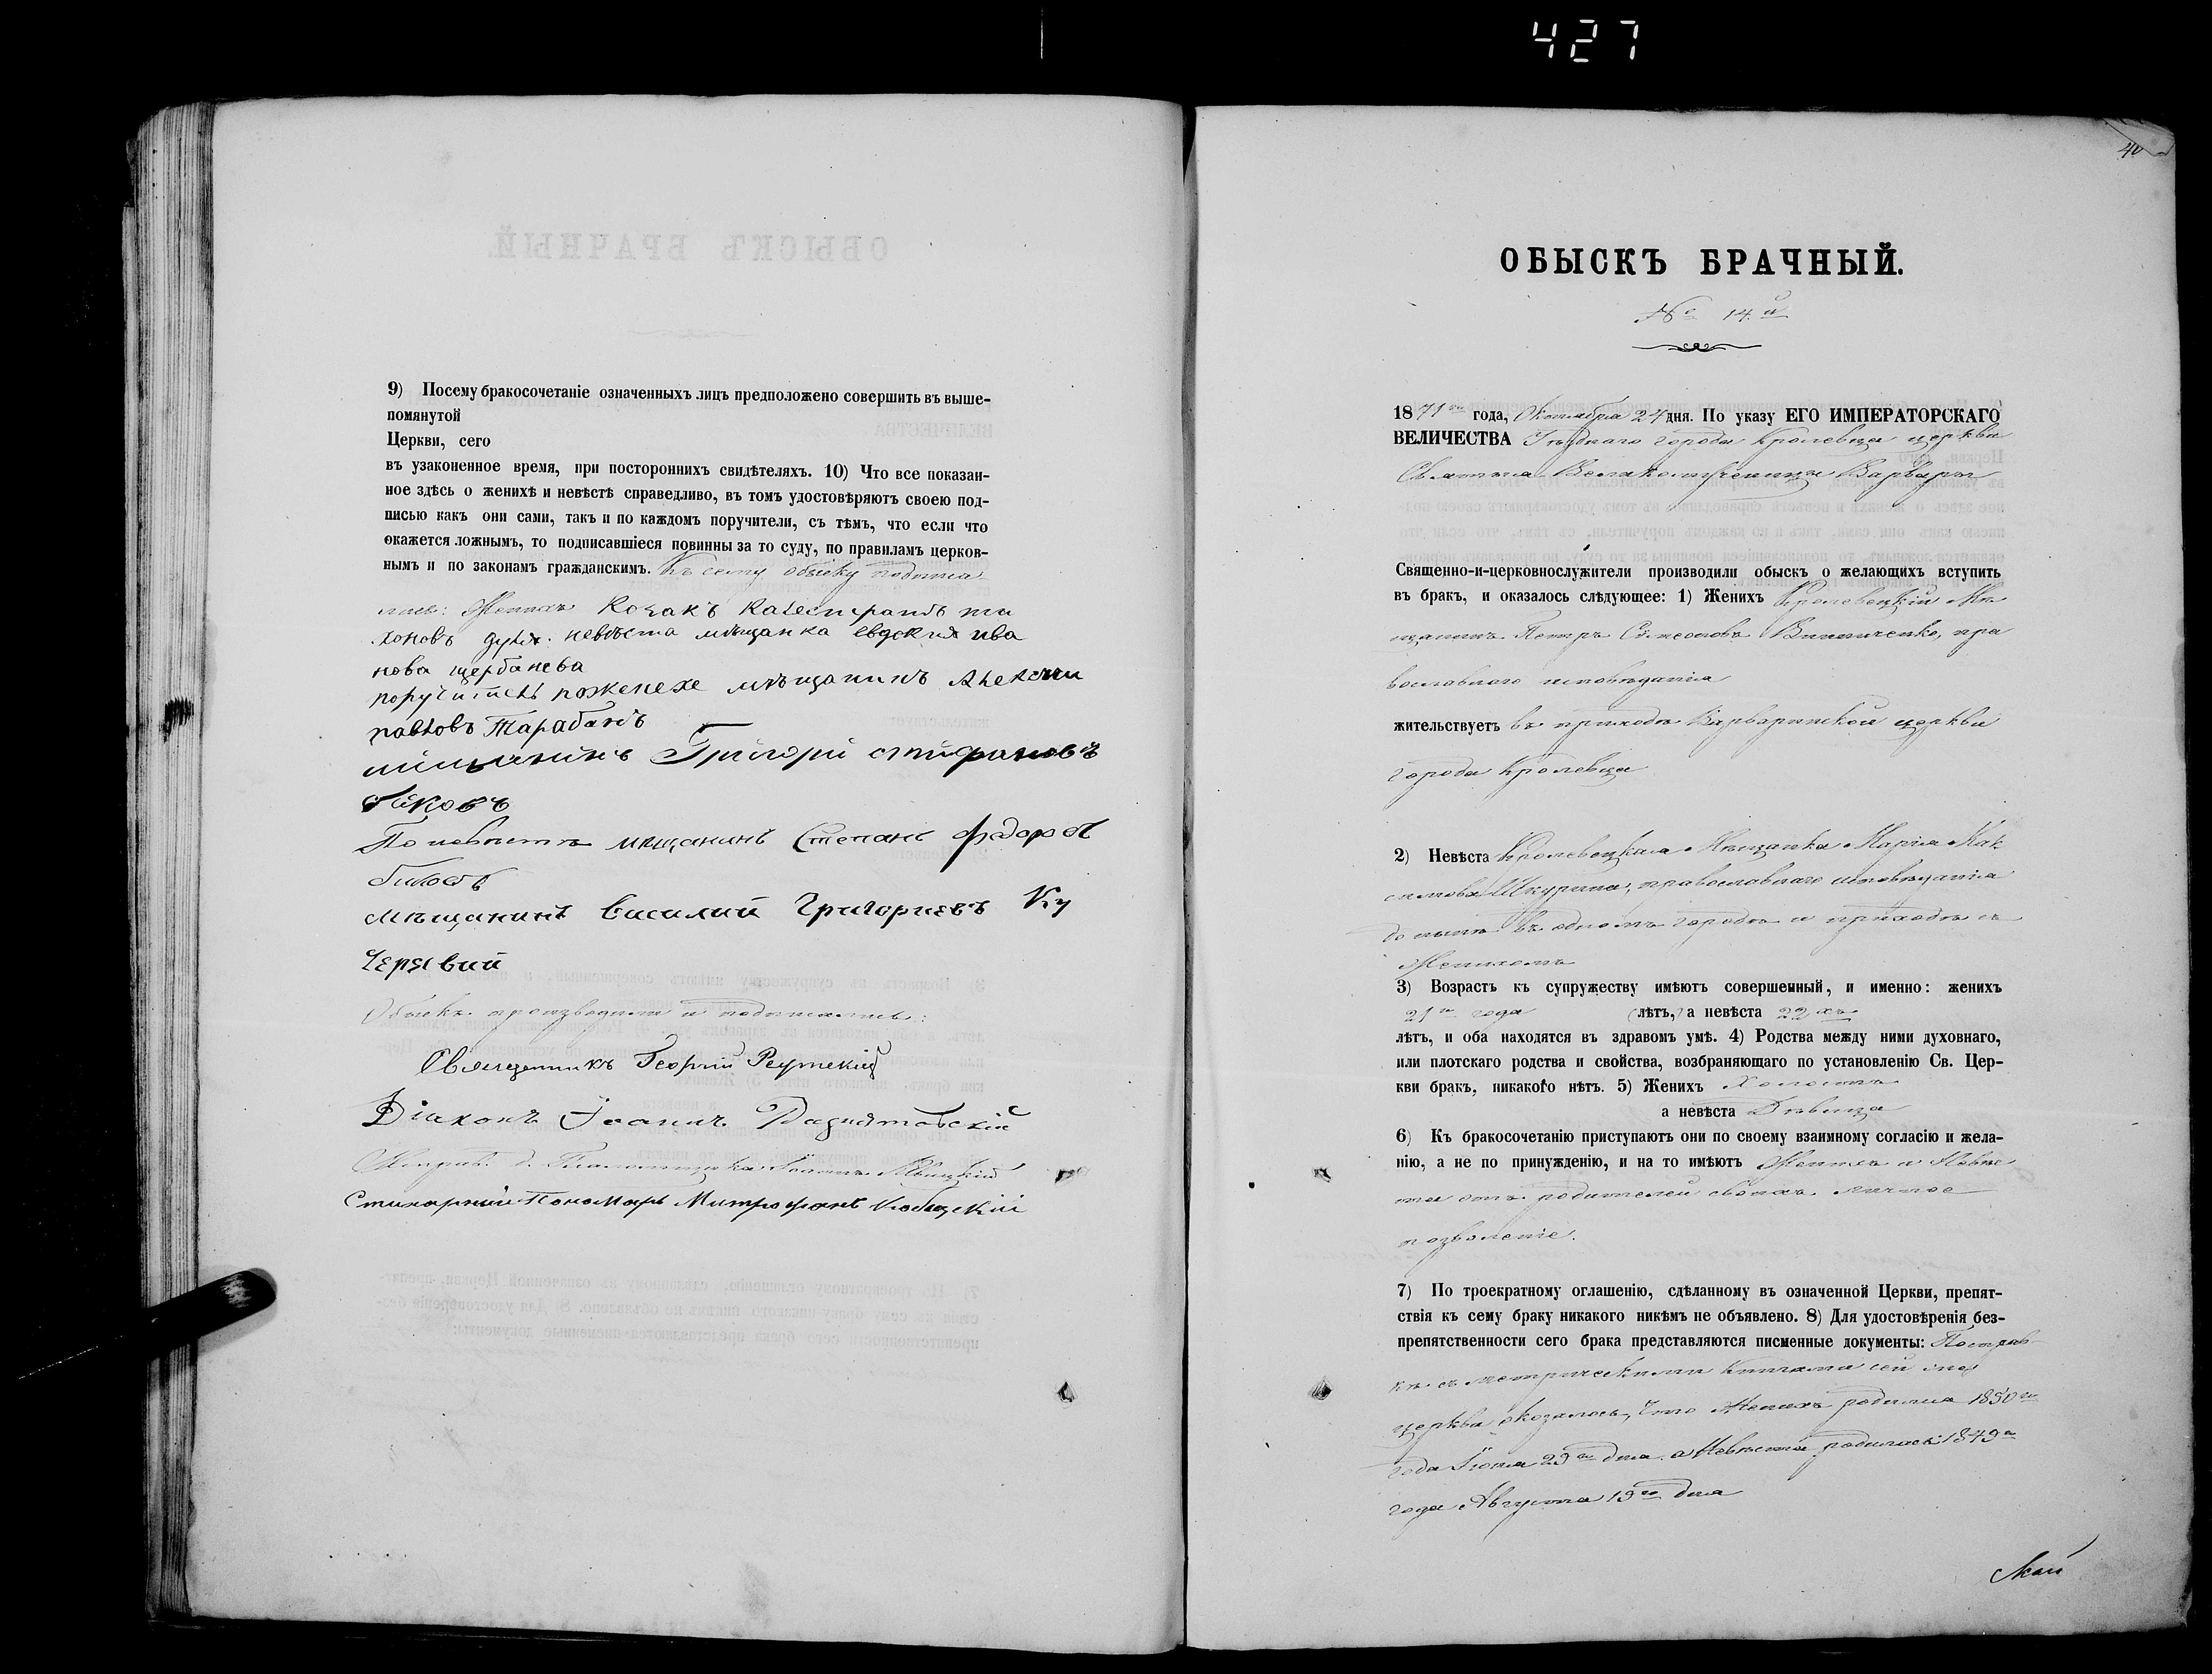 427
9) Посему бракосочетаніе означенныхъ лицъ предположено совершить въ выше-
помянутой
Церкви, сего
въ узаконенное время, при постороннихъ свидѣтеляхъ. 10) Что все показан-
ное здѣсь о женихѣ и невѣстѣ справедливо, въ томъ удостовѣряютъ своею под-
писью какъ они сами, такъ и по каждомъ поручители, съ тѣмъ, что если что
окажется ложнымъ, то подписавшіеся повинны за то суду, по правиламъ церков-
нымъ и по законамъ гражданскимъ. Къ сему обыску подписа
лись: Женихъ Козакъ
невѣста мѣщанка евдокия ива
нова щербанева
поручитель поженехе мѣщанинъ Алексѣи
павловъ Тарабанъ
Григори
По невѣстѣ мещанинъ Степанъ Федоров
мѣщанинъ Василий Григориевъ Ку
Черявий
Обыскъ производили и подписались:
Священникъ Георгій
Діаконъ Іоаннъ
Стихарный Пономарь Митрофанъ
40
ОБЫСКЪ БРАЧНЫЙ.
№ 14й
1871го года, Октября 24 дня. По указу ЕГО ИМПЕРАТОРСКАГО
ВЕЛИЧЕСТВА Уѣзднаго города Кролевца церкви
Святыя Великомученицы Варвары
Священно-и-церковнослужители производили обыскъ о желающихъ вступить
въ бракъ, и оказалось слѣдующее: 1) Женихъ Кролевецкій Мѣ
щанинъ Петръ Симеоновъ Винниченко, пра
вославнаго исповѣданія
жительствуетъ въ приходѣ Варваринской церкви
города Кролевца
2) Невѣста Кролевецкая Мѣщанка Марія Мак
симова Шкурина, православнаго исповѣданія
до нынѣ въ одномъ городѣ и приходѣ съ
Женихомъ
3) Возрастъ къ супружеству имѣютъ совершенный, и именно: женихъ
21го года лѣтъ, а невѣста 22хъ
лѣтъ, и оба находятся въ здравомъ умѣ. 4) Родства между ними духовнаго,
или плотскаго родства и свойства, возбраняющаго по установленію Св. Цер-
кви бракъ, никакого нѣтъ. 5) Женихъ Холостъ
а невѣста Дѣвица
6) Къ бракосочетанію приступаютъ они по своему взаимному согласію и жела-
нію, а не по принужденію, и на то имѣютъ Женихъ и Невѣс
та отъ родителей своихъ личное
позволеніе.
7) По троекратному оглашенію, сдѣланному въ означенной Церкви, препят-
ствія къ сему браку никакого никѣмъ не объявлено. 8) Для удостовѣренія без-
препятственности сего брака представляются писменные документы: По справ-
кѣ съ метрическими книгами сей
церкви оказалось, что Женихъ родился 1850го
года Іюня 29го дня, а Невѣста родилась 1849го
года Августа 19го дня